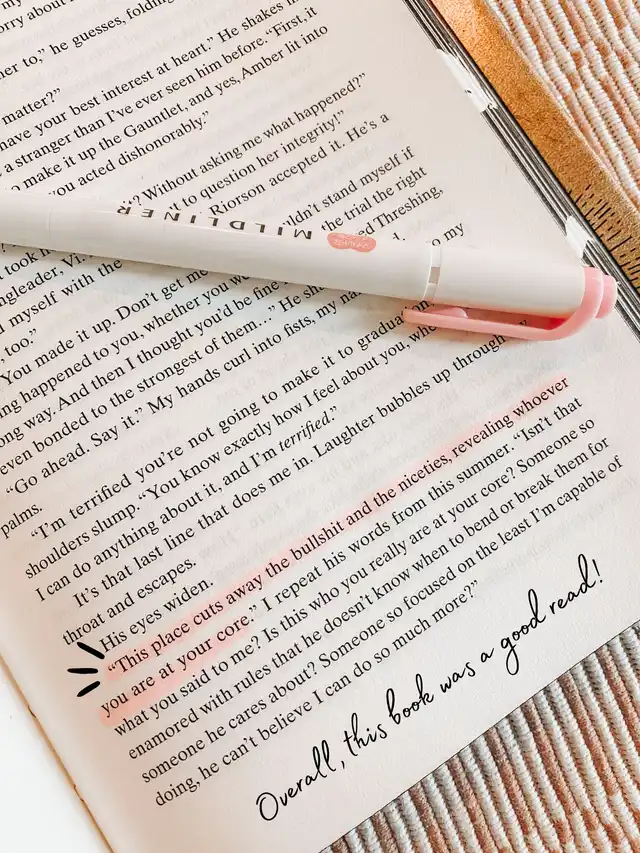 my
orry about
her to," he guesses, folding
have your best interest at heart." He shakes h
matter?"
a stranger than I've ever seen him before. "First, it
o make it up the Gauntlet, and yes, Amber lit into
you acted dishonorably."
?" Without asking me what happened?"
t to question her integrity!"
Riorson accepted it. He's a
uldn't stand myself if
the trial the right
took
ed Threshing,
ngleader, Vi.
myself with the
o my
, too."
You made it up. Don't get me
ing happened to you, whether you we
ong way. And then I thought you'd be fine
even bonded to the strongest of them…" He sh
"Go ahead. Say it." My hands curl into fists, my na
palms.
"I'm terrified you're not going to make it to graduation
shoulders slump. "You know exactly how I feel about you, whe
I can do anything about it, and I'm terrified."
It's that last line that does me in. Laughter bubbles up through my
throat and escapes.
His eyes widen.
"This place cuts away the bullshit and the niceties, revealing whoever
you are at your core." I repeat his words from this summer. "Isn't that
what you said to me? Is this who you really are at your core? Someone so
enamored with rules that he doesn't know when to bend or break them for
someone he cares about? Someone so focused on the least I'm capable of
doing, he can't believe I can do so much more?"
MILDLINER
ZEBRA
Overall, this book was a good read!